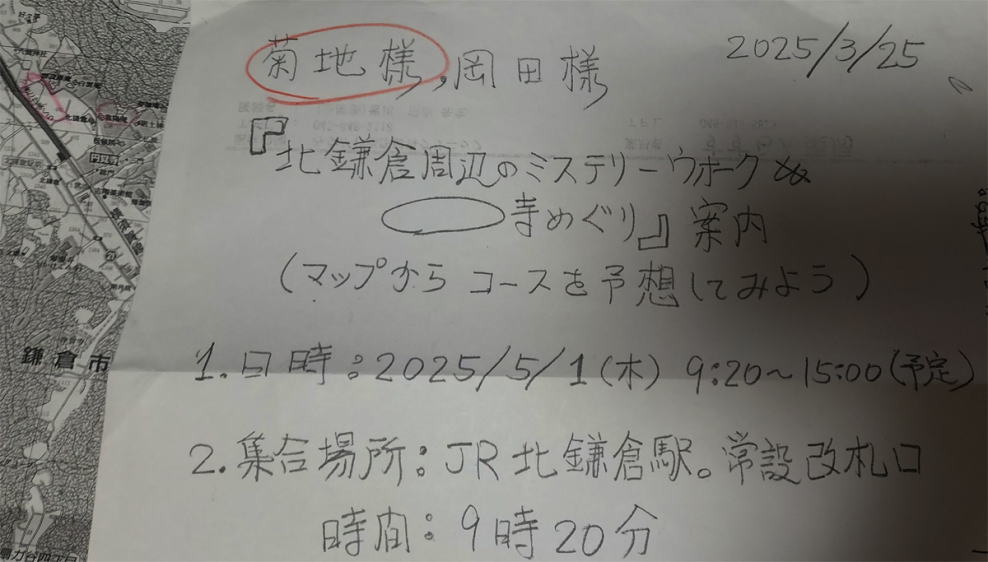 菊地様,岡田様
2025/3/25
『北鎌倉周辺のミステリーウォーク
寺めぐり』案内
(マップからコースを予想してみよう)
1.日時:2025/5/1(木) 9:20~15:00(予定)
2.集合場所:JR北鎌倉駅。常設改札口
時間:9時20分
鎌倉市